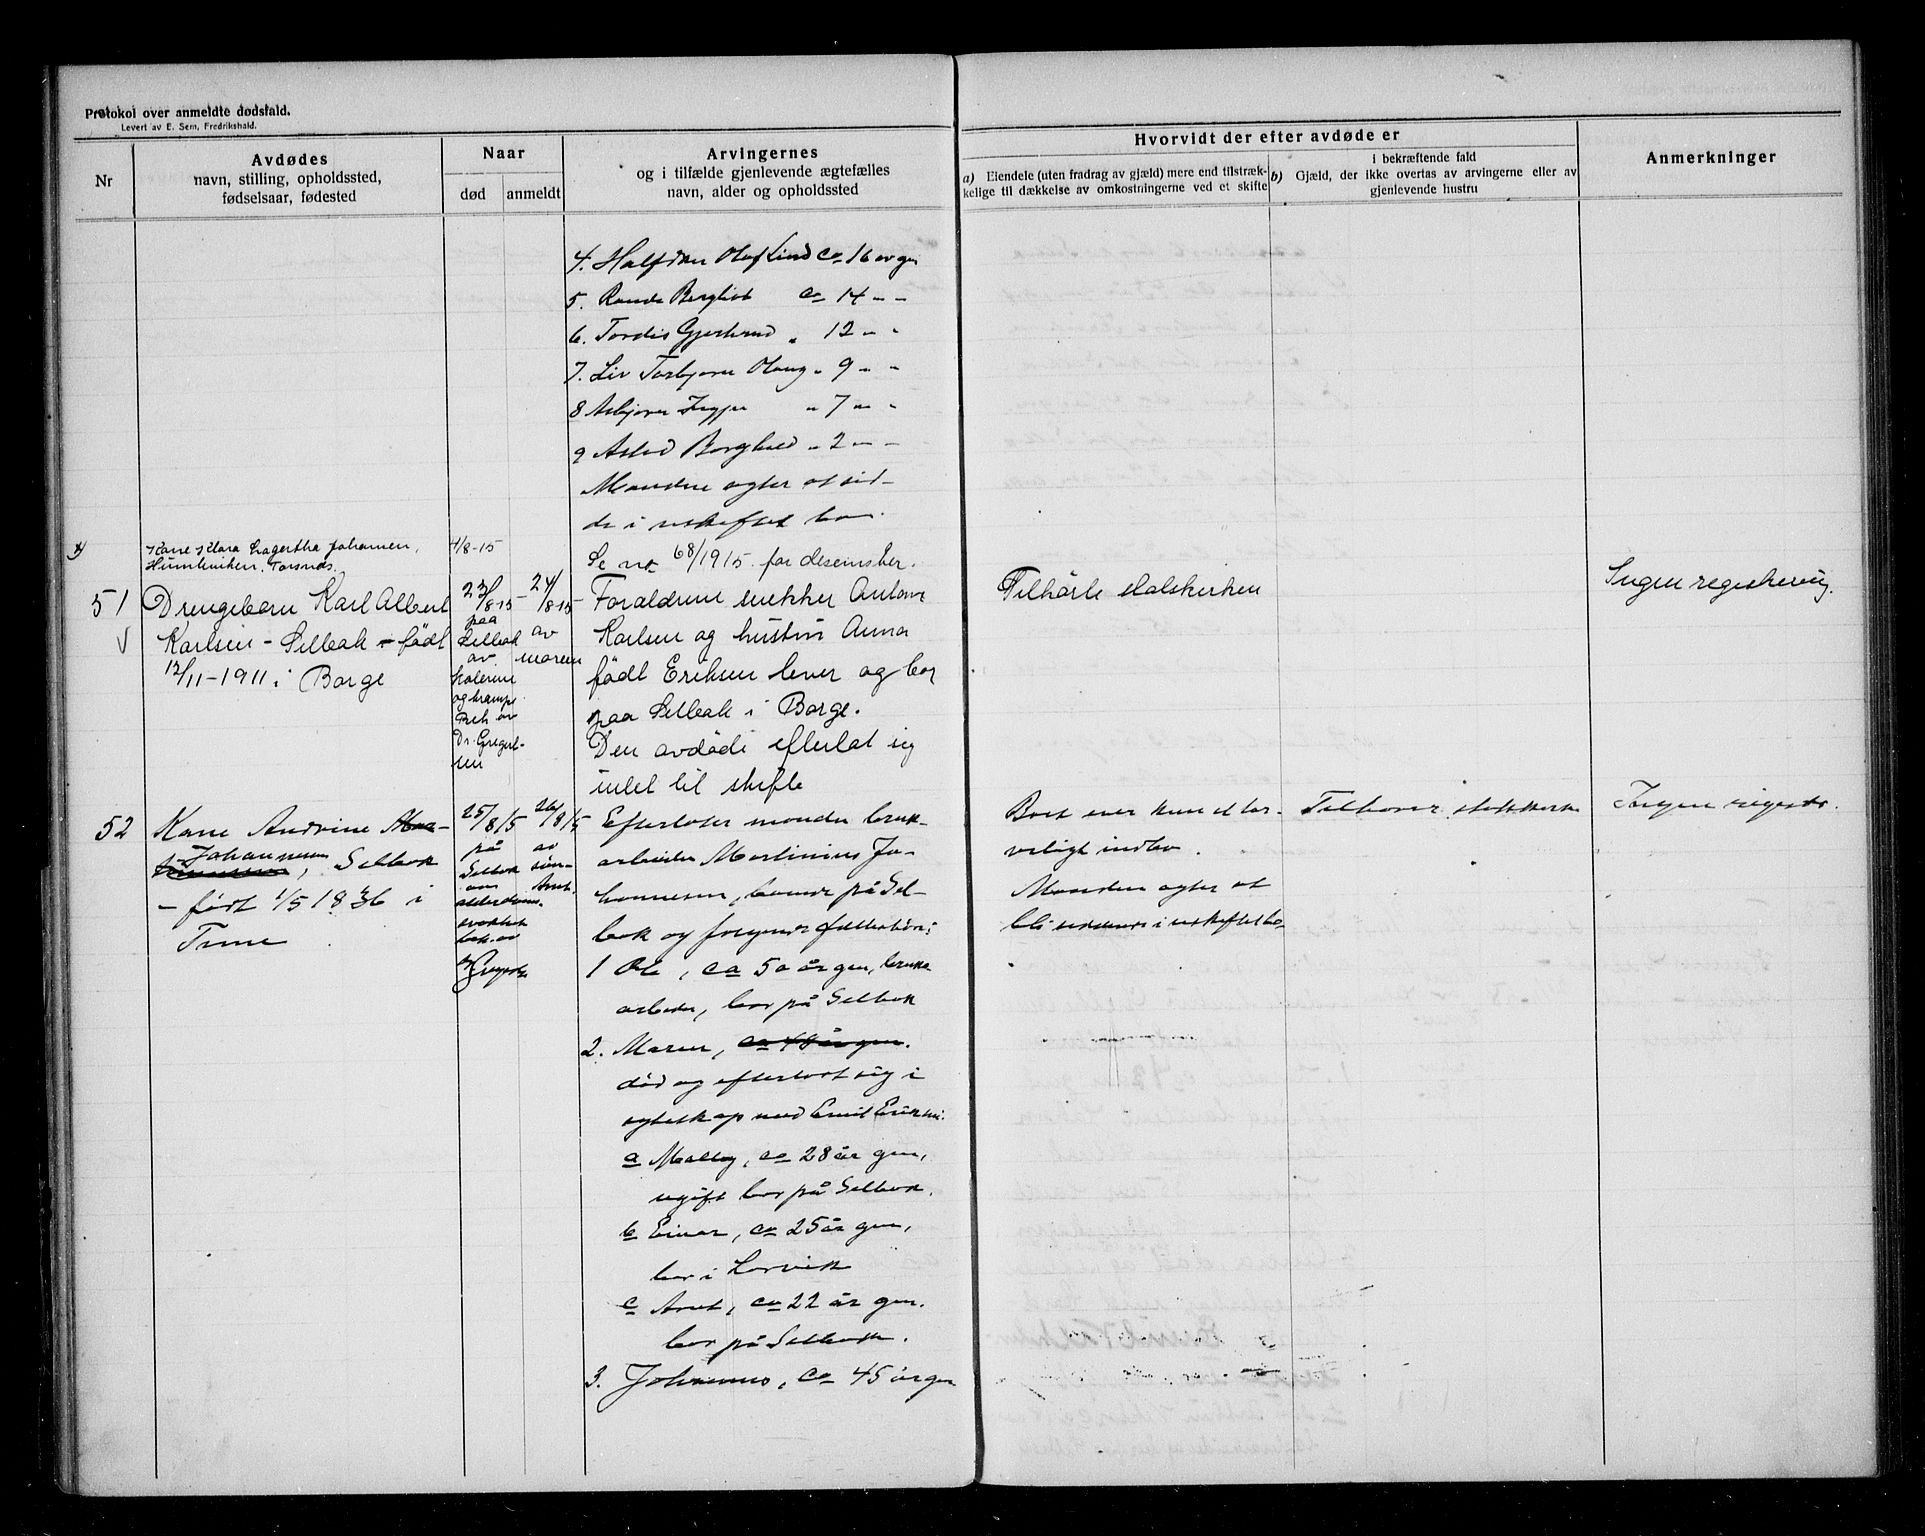 Protokol over anmeldte dødsfald.
Levert av E. Sem, Fredrikshald.
Nr
Avdødes
navn, stilling, opholdssted,
fødselsaar, fødested
Naar
død anmeldt
Arvingernes
og i tilfælde gjenlevende ægtefælles
navn, alder og opholdssted
Hvorvidt der efter avdøde er
a) Eiendele (uten fradrag av gjæld) mere end tilstræk-
kelige til dækkelse av omkostningerne ved et skifte
b) i bekræftende fald
Gjæld, der ikke overtas av arvingerne eller av
gjenlevende hustru
Anmerkninger
4. Halfdan Olaf Lind ca 16 år gm
5. Randa Bergliot ca 14 " "
6. Tordis Gjertrud " 12 " "
7. Liv Torbjørn " 9 " "
8 Asbjørn " 7 " "
9 Borghild " 2 " "
Manden agter at sid-
de i uskiftet bo.
Kone Klara Lagertha Johansen,
Humleviken. Torsnæs.
4/8-15
Se no 68/1915 for desember.
51
Drengebarn Karl Albert
Karlsen - Selbak - født
12/11-1911 i Borge
23/8-15
paa
Selbak
av
kolerine
og krampe
Beh av
Dr. Gregert-
sen
24/8-15
av
moren
Forældrene snekker Anton
Karlsen og hustru Anna
født Eriksen lever og bor
paa Selbak i Borge.
Den avdøde efterlot sig
intet til skifte
Tilhørte statskirken
Ingen registrering.
52
Kone Andrine
Johannesen, Selbak
- født 1/5 1836 i
Tune
25/8 15
på
Selbak
av
alderdoms-
svakhet
beh. av
26/8 15
av
søn-
Efterlater manden bruk-
arbeider Martinius Jo-
hannesen, boende på Sel-
bak og følgende fællesbørn:
1 Ole, ca 50 år gm, bruks-
arbeider, bor på Selbak
2. Maren, ca 48 år gm.
død og efterlot sig i
egteskap med Emil Eriksen:
a ca 28 år gm,
ugift bor på Selbak.
b Einar, ca 25 år gm,
bor i Larvik
c Arnt, ca 22 år gm.
bor på Selbak.
3. Johannes, ca 45 år gm
Boet eier kun et tar-
veligt indbo.
Manden agter at
bli siddende i uskiftet bo.
Tilhører statskirke
Ingen registr.